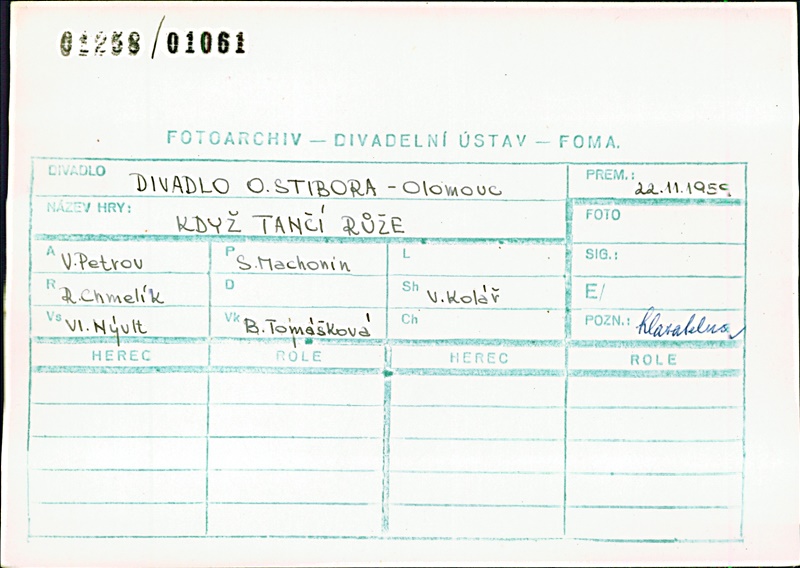 01258/01061
FOTOARCHIV — DIVADELNÍ ÚSTAV — FOMA.
DIVADLO DIVADLO O. STIBORA - Olomouc PREM.: 22.11.1959
NÁZEV HRY: KDYŽ TANČÍ RŮŽE FOTO
A V. Petrov P S. Machonin L SIG.:
R R. Chmelík D Sh V. Kolář E/
Vs Vl. Nývlt Vk B. Tomášková Ch POZN.:
HEREC ROLE HEREC ROLE